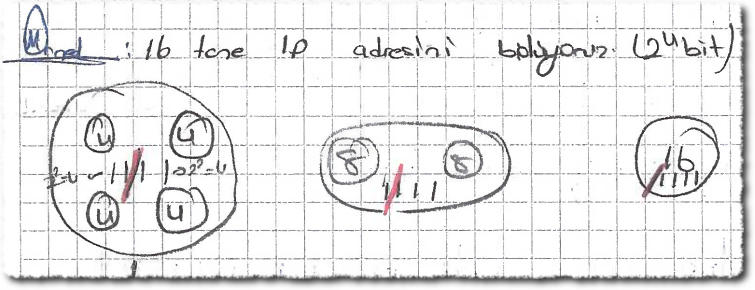 : 16 tane IP adresini bölüyoruz. (2⁴ bit)
4 4
2²=4 ← 11/11 → 2²=4
4 4
8 8
1/111
16
/1111